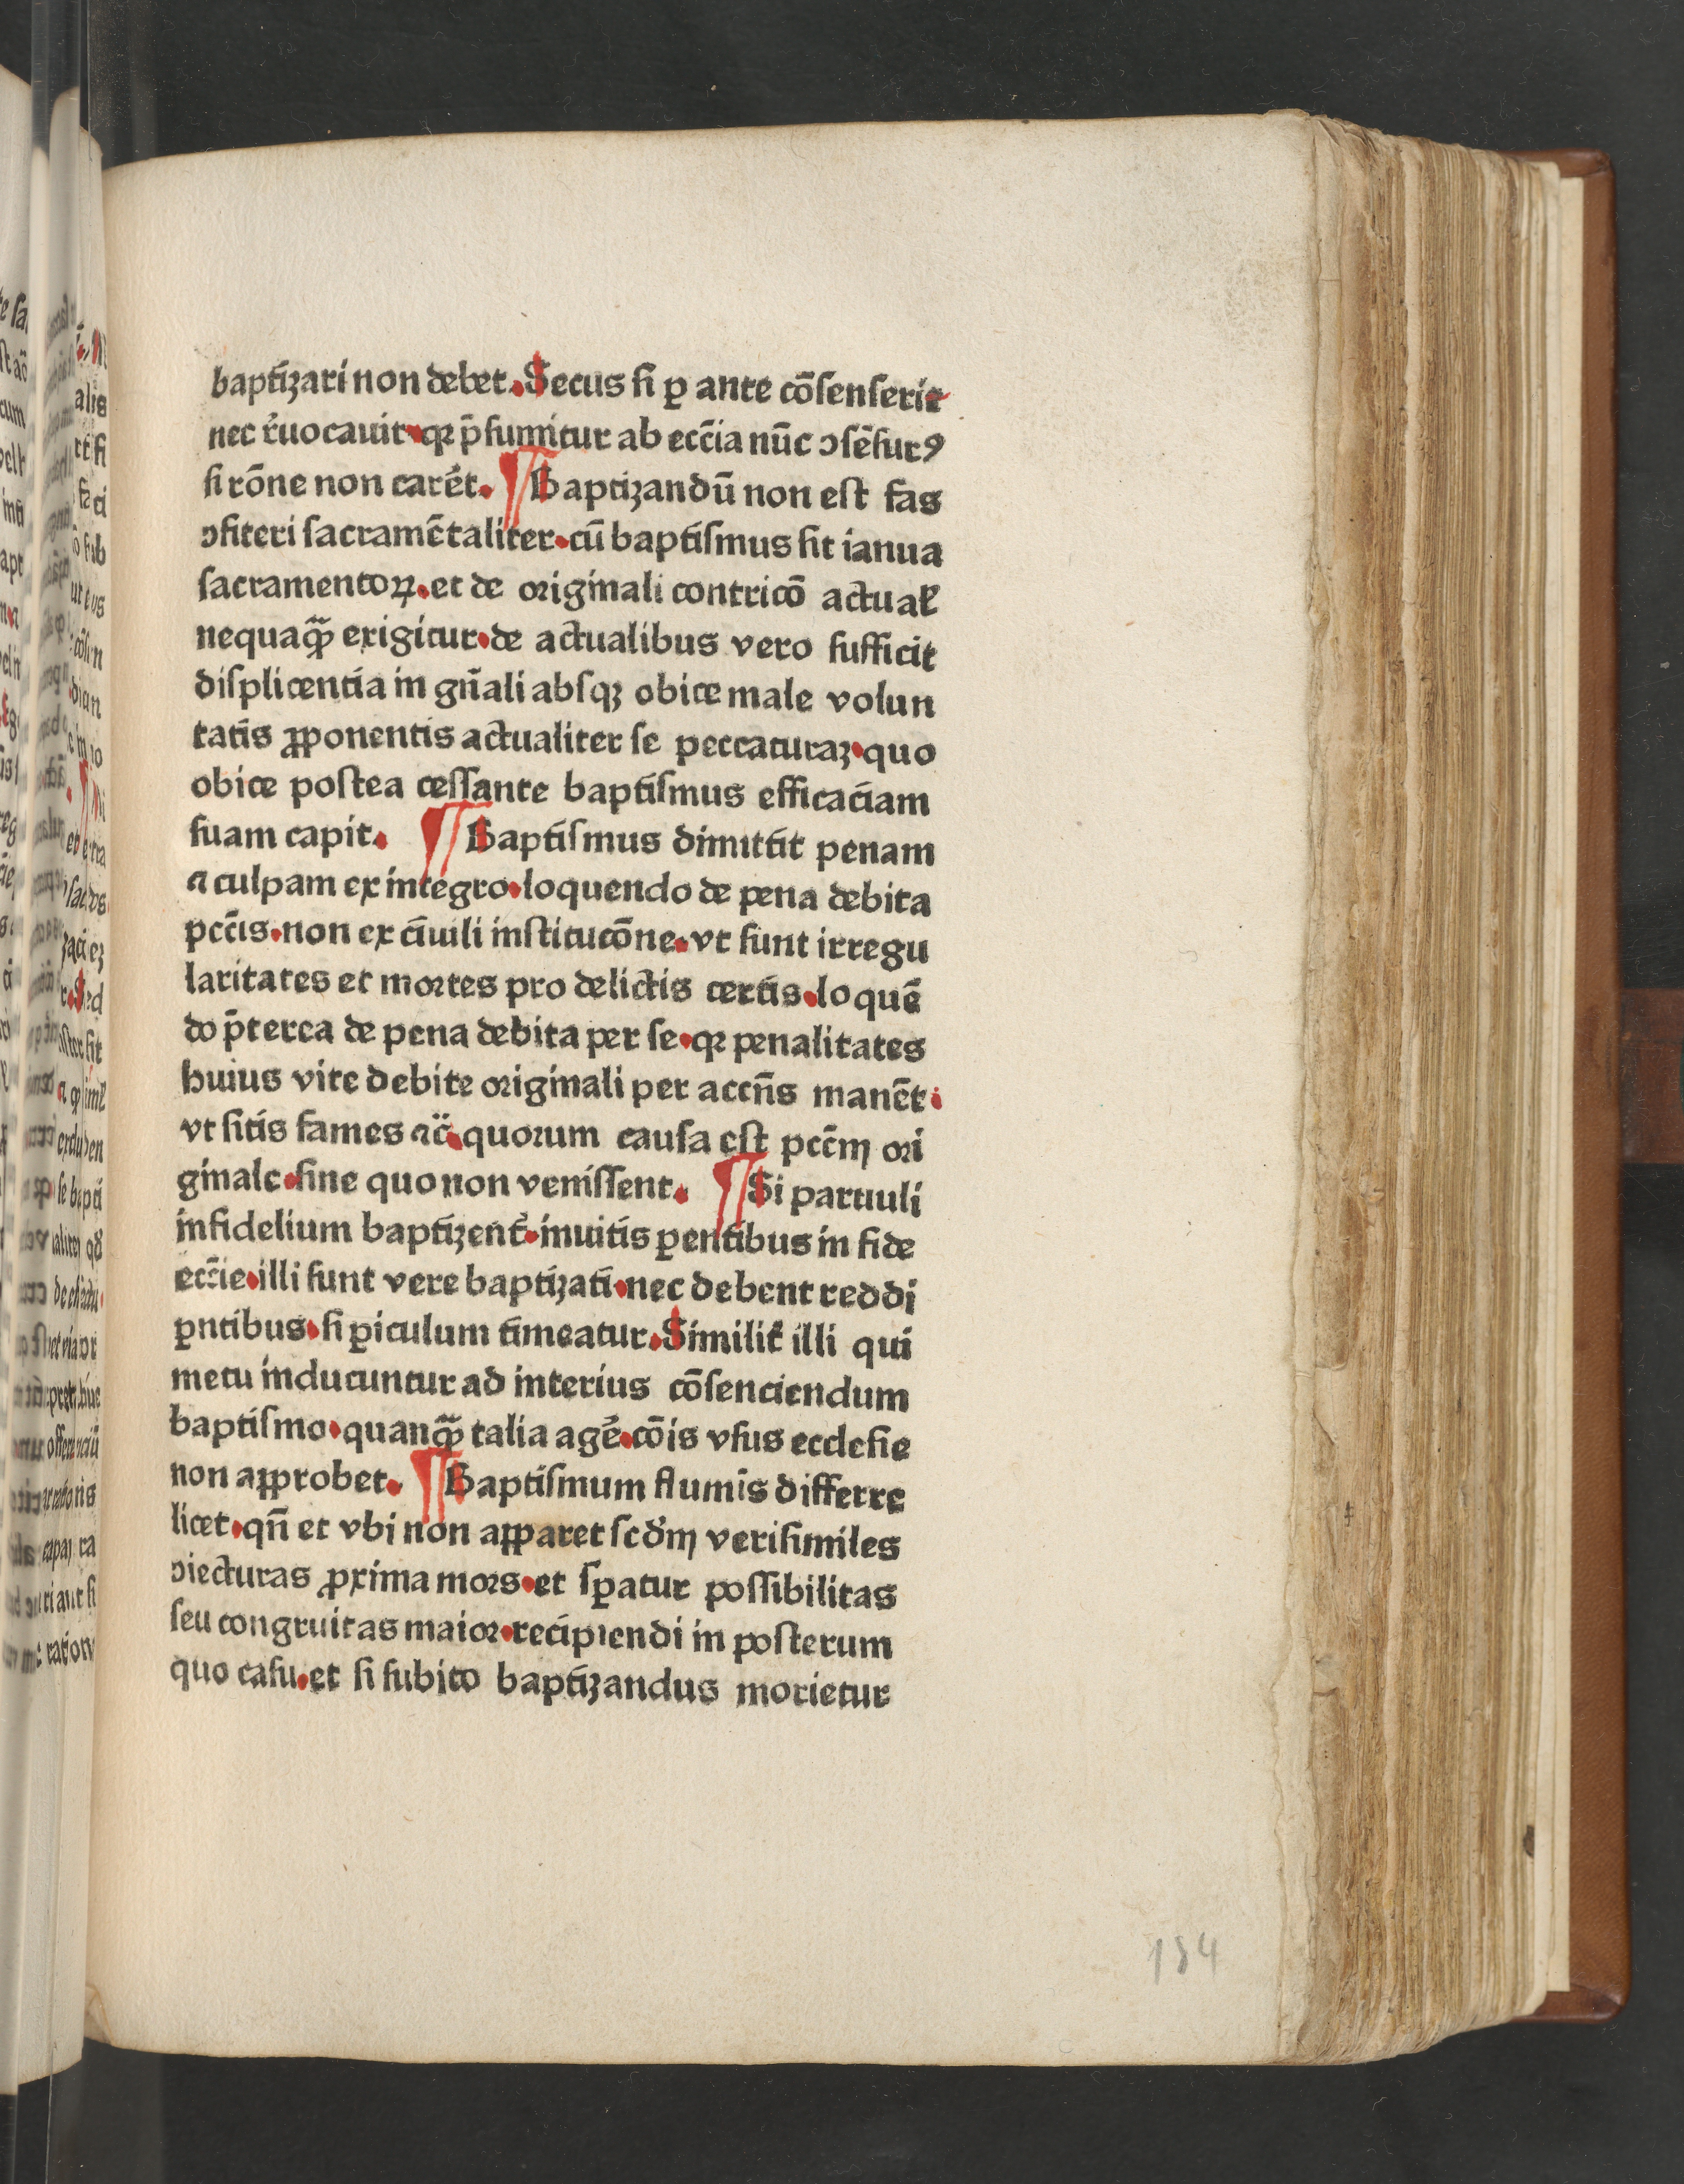 baptizari non debet. Secus si ꝑ ante cōsenserit
nec r̄uocauit. qꝛ p̄sumitur ab ecc̄ia nūc ↄsēsurꝰ
si rōne non carēt. ¶ Baptizandū non est fas
ↄfiteri sacramētaliter. cū baptismus sit ianua
sacramentoꝝ. et de originali contricō actual̕
nequaꝙ̄ exigitur. de actualibus vero sufficit
displicentia in gn̄ali absqꝫ obice male volun
tatis ꝓponentis actualiter se peccaturaꝫ. quo
obice postea cessante baptismus efficaciam
suam capit. ¶ Baptismus dimittit penam
⁊ culpam ex integro. loquendo de pena debita
pcc̄is. non ex ciuili institucōne. vt sunt irregu
laritates et mortes pro delictis certis. loquē
do p̄terea de pena debita per se. qꝛ penalitates
huius vite debite originali per accn̄s manēt.
vt sitis fames ⁊c̄. quorum causa est pcc̄m ori
ginale. sine quo non venissent. ¶ Si paruuli
infidelium baptizent᷑. inuitis ꝑentibus in fide
ecc̄ie. illi sunt vere baptizati. nec debent reddi
ꝑntibus. si ꝑiculum timeatur. Similit᷑ illi qui
metu inducuntur ad interius cōsenciendum
baptismo. quanꝙ̄ talia agē. cōis vsus ecclesie
non aꝓprobet. ¶ Baptismum fluminis differre
licet. qn̄ et vbi non apparet scd̄m verisimiles
ↄiecturas ꝓxima mors. et sꝑatur possibilitas
seu congruitas maior. recipiendi in posterum
quo casu. et si subito baptizandus morietur
184